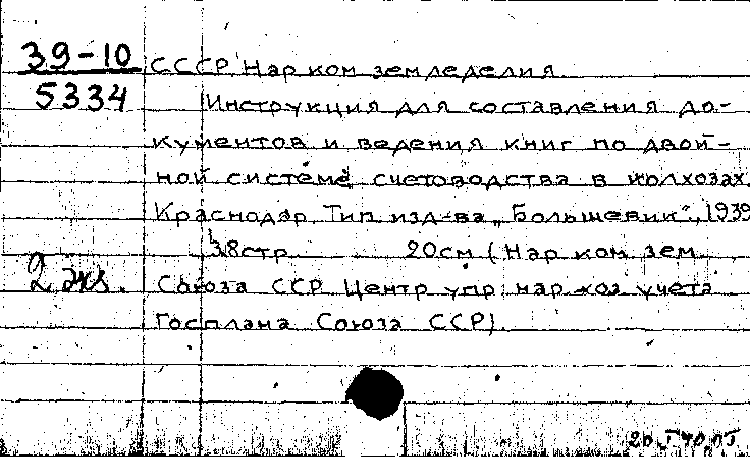 39-10
5334
СССР Нар ком земледелия
Инструкция для составления до-
кументов и ведения книг по двой-
ной системе счетоводства в колхозах
Краснодар Тип изд-ва „Большевик“, 1939
38стр 20см (Нар ком зем
2 экз.
Союза ССР Центр упр нар хоз учета
Госплана Союза ССР).